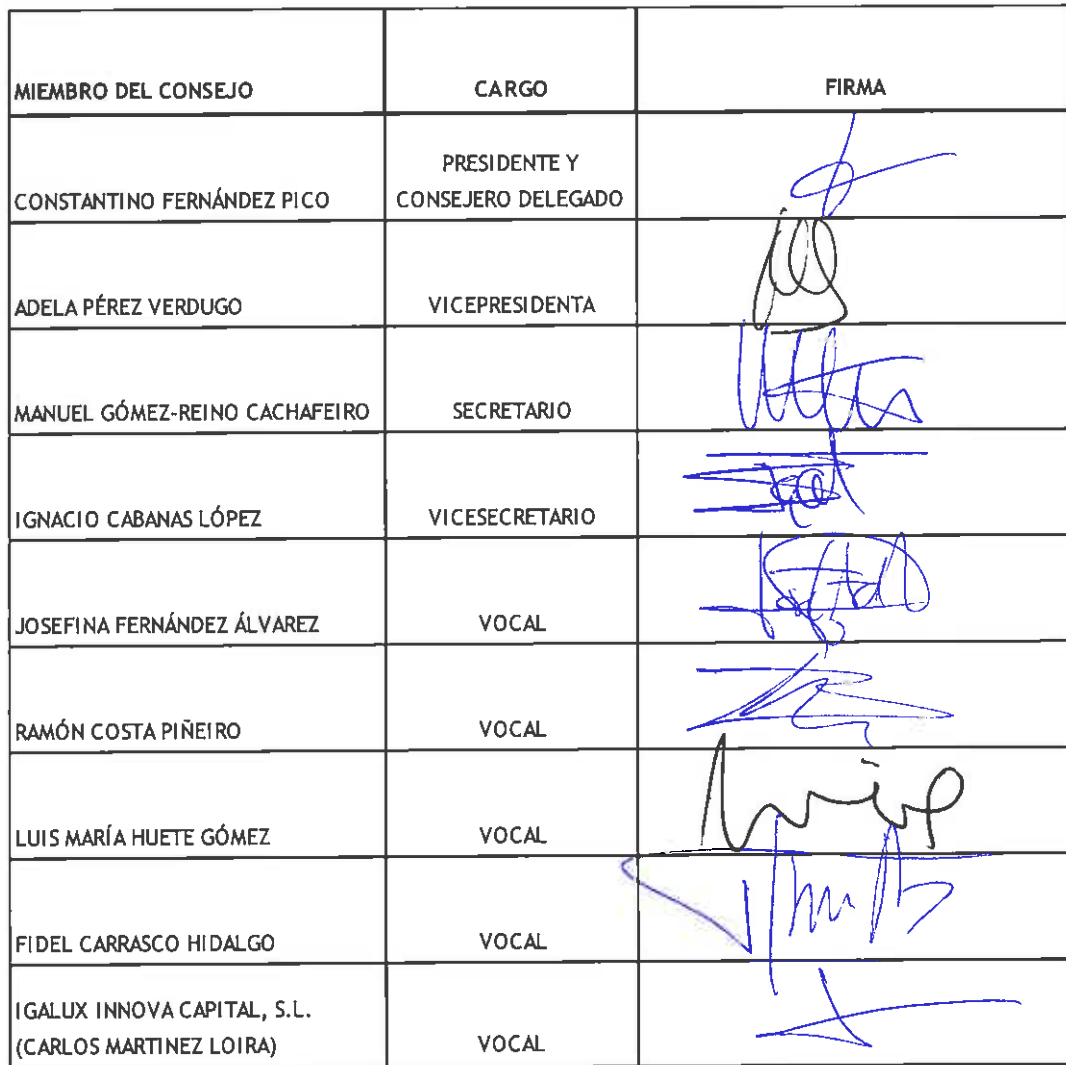 MIEMBRO DEL CONSEJO CARGO FIRMA
PRESIDENTE Y
CONSTANTINO FERNÁNDEZ PICO CONSEJERO DELEGADO
ADELA PÉREZ VERDUGO VICEPRESIDENTA
MANUEL GÓMEZ-REINO CACHAFEIRO SECRETARIO
IGNACIO CABANAS LÓPEZ VICESECRETARIO
JOSEFINA FERNÁNDEZ ÁLVAREZ VOCAL
RAMÓN COSTA PIÑEIRO VOCAL
LUIS MARÍA HUETE GÓMEZ VOCAL
FIDEL CARRASCO HIDALGO VOCAL
IGALUX INNOVA CAPITAL, S.L.
(CARLOS MARTINEZ LOIRA) VOCAL